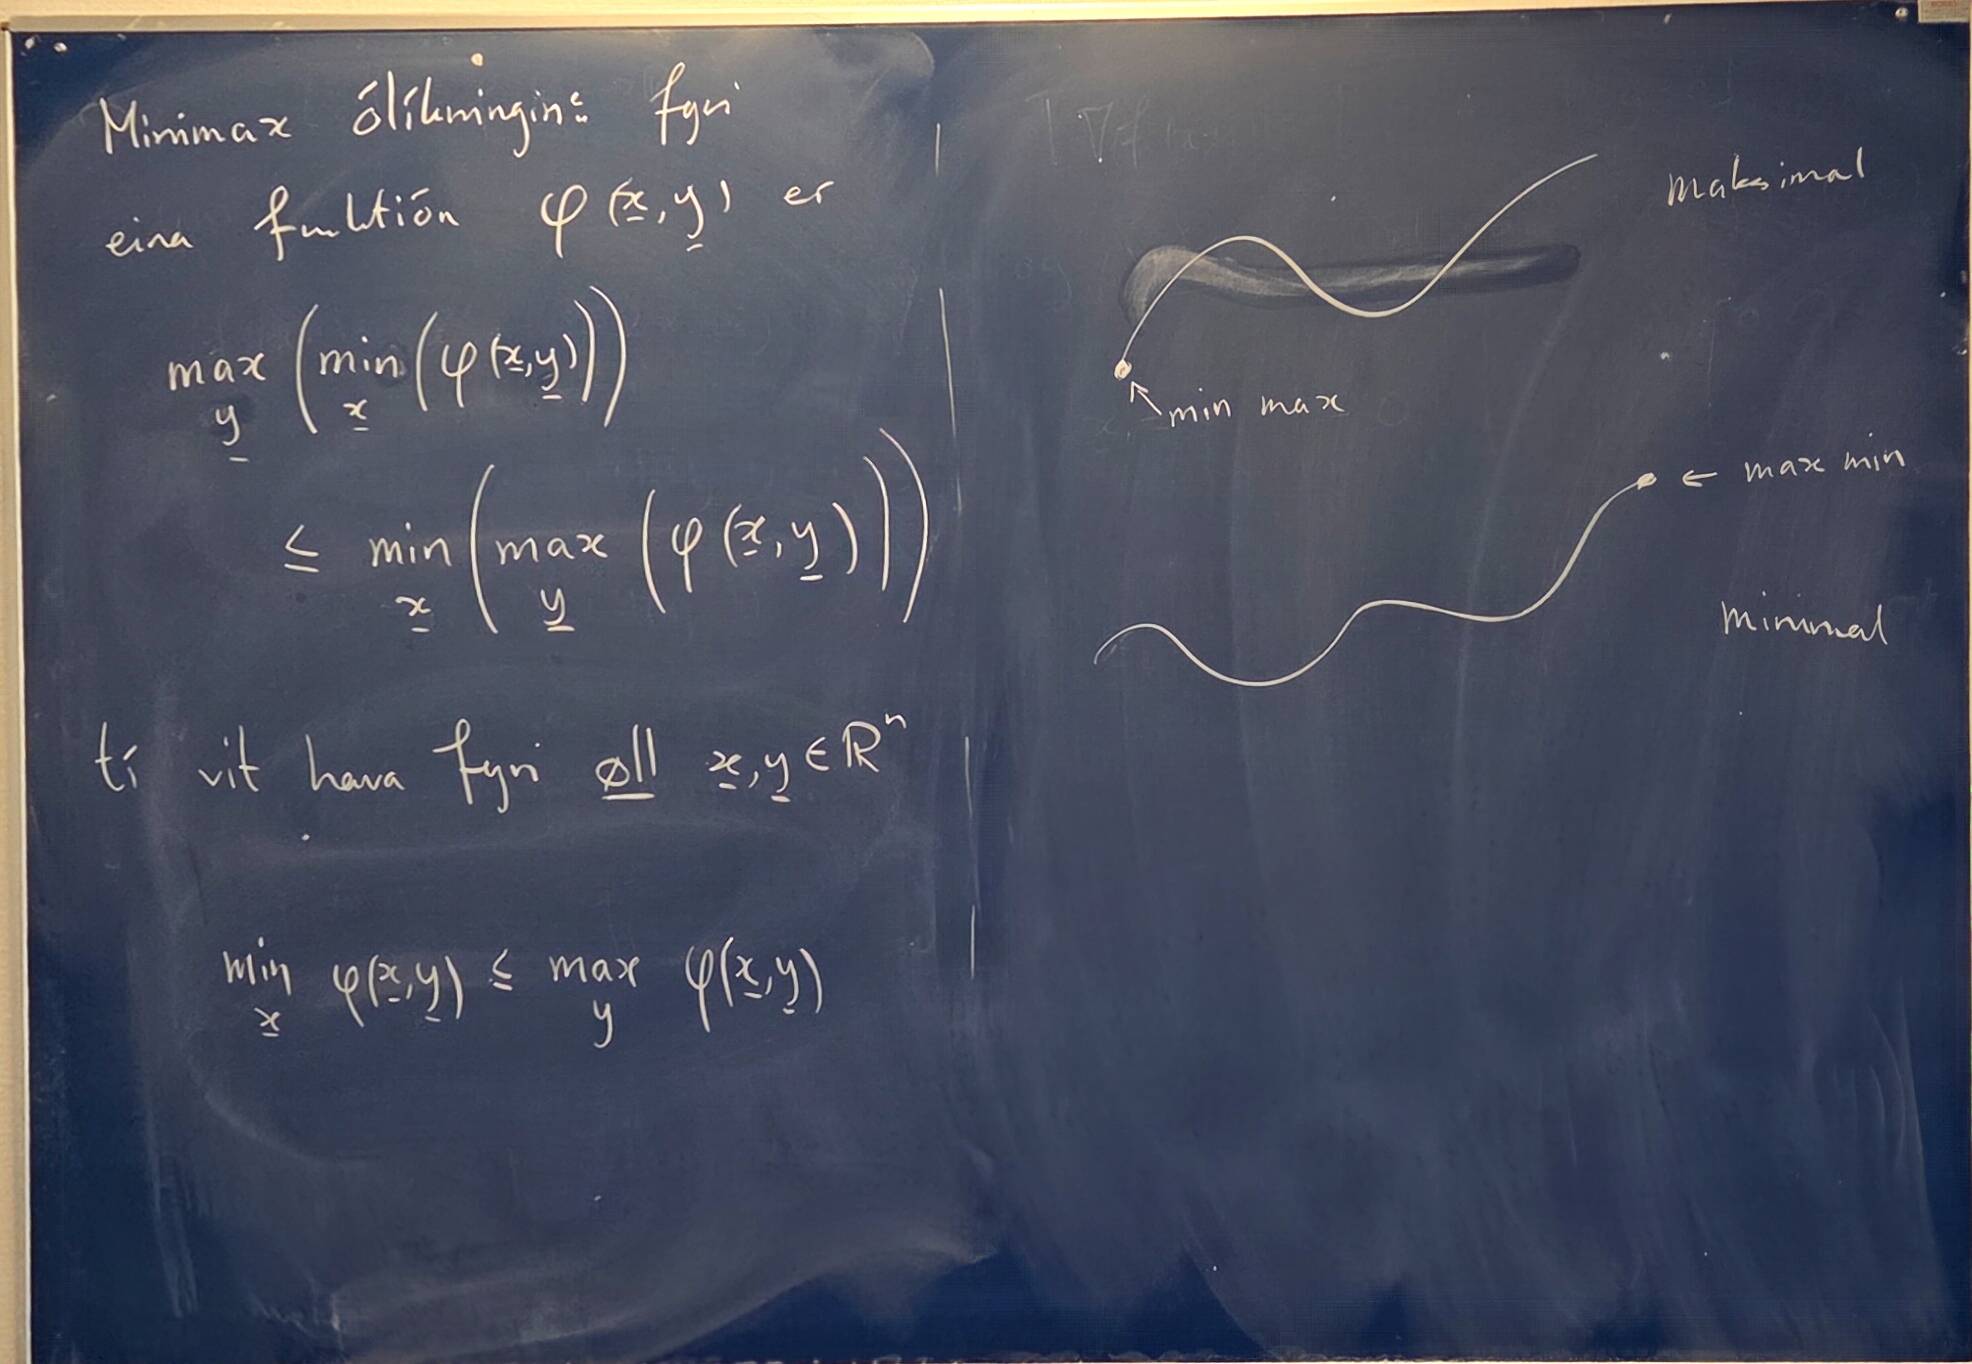 Minimax ólíkningin: fyri
eina funktión φ(x̲, y̲) er
max (min (φ(x̲, y̲)))
y̲ x̲
≤ min (max (φ(x̲, y̲)))
x̲ y̲
tí vit hava fyri øll x̲, y̲ ∈ ℝⁿ
min φ(x̲, y̲) ≤ max φ(x̲, y̲)
x̲ y
maksimal
min max
← max min
minimal